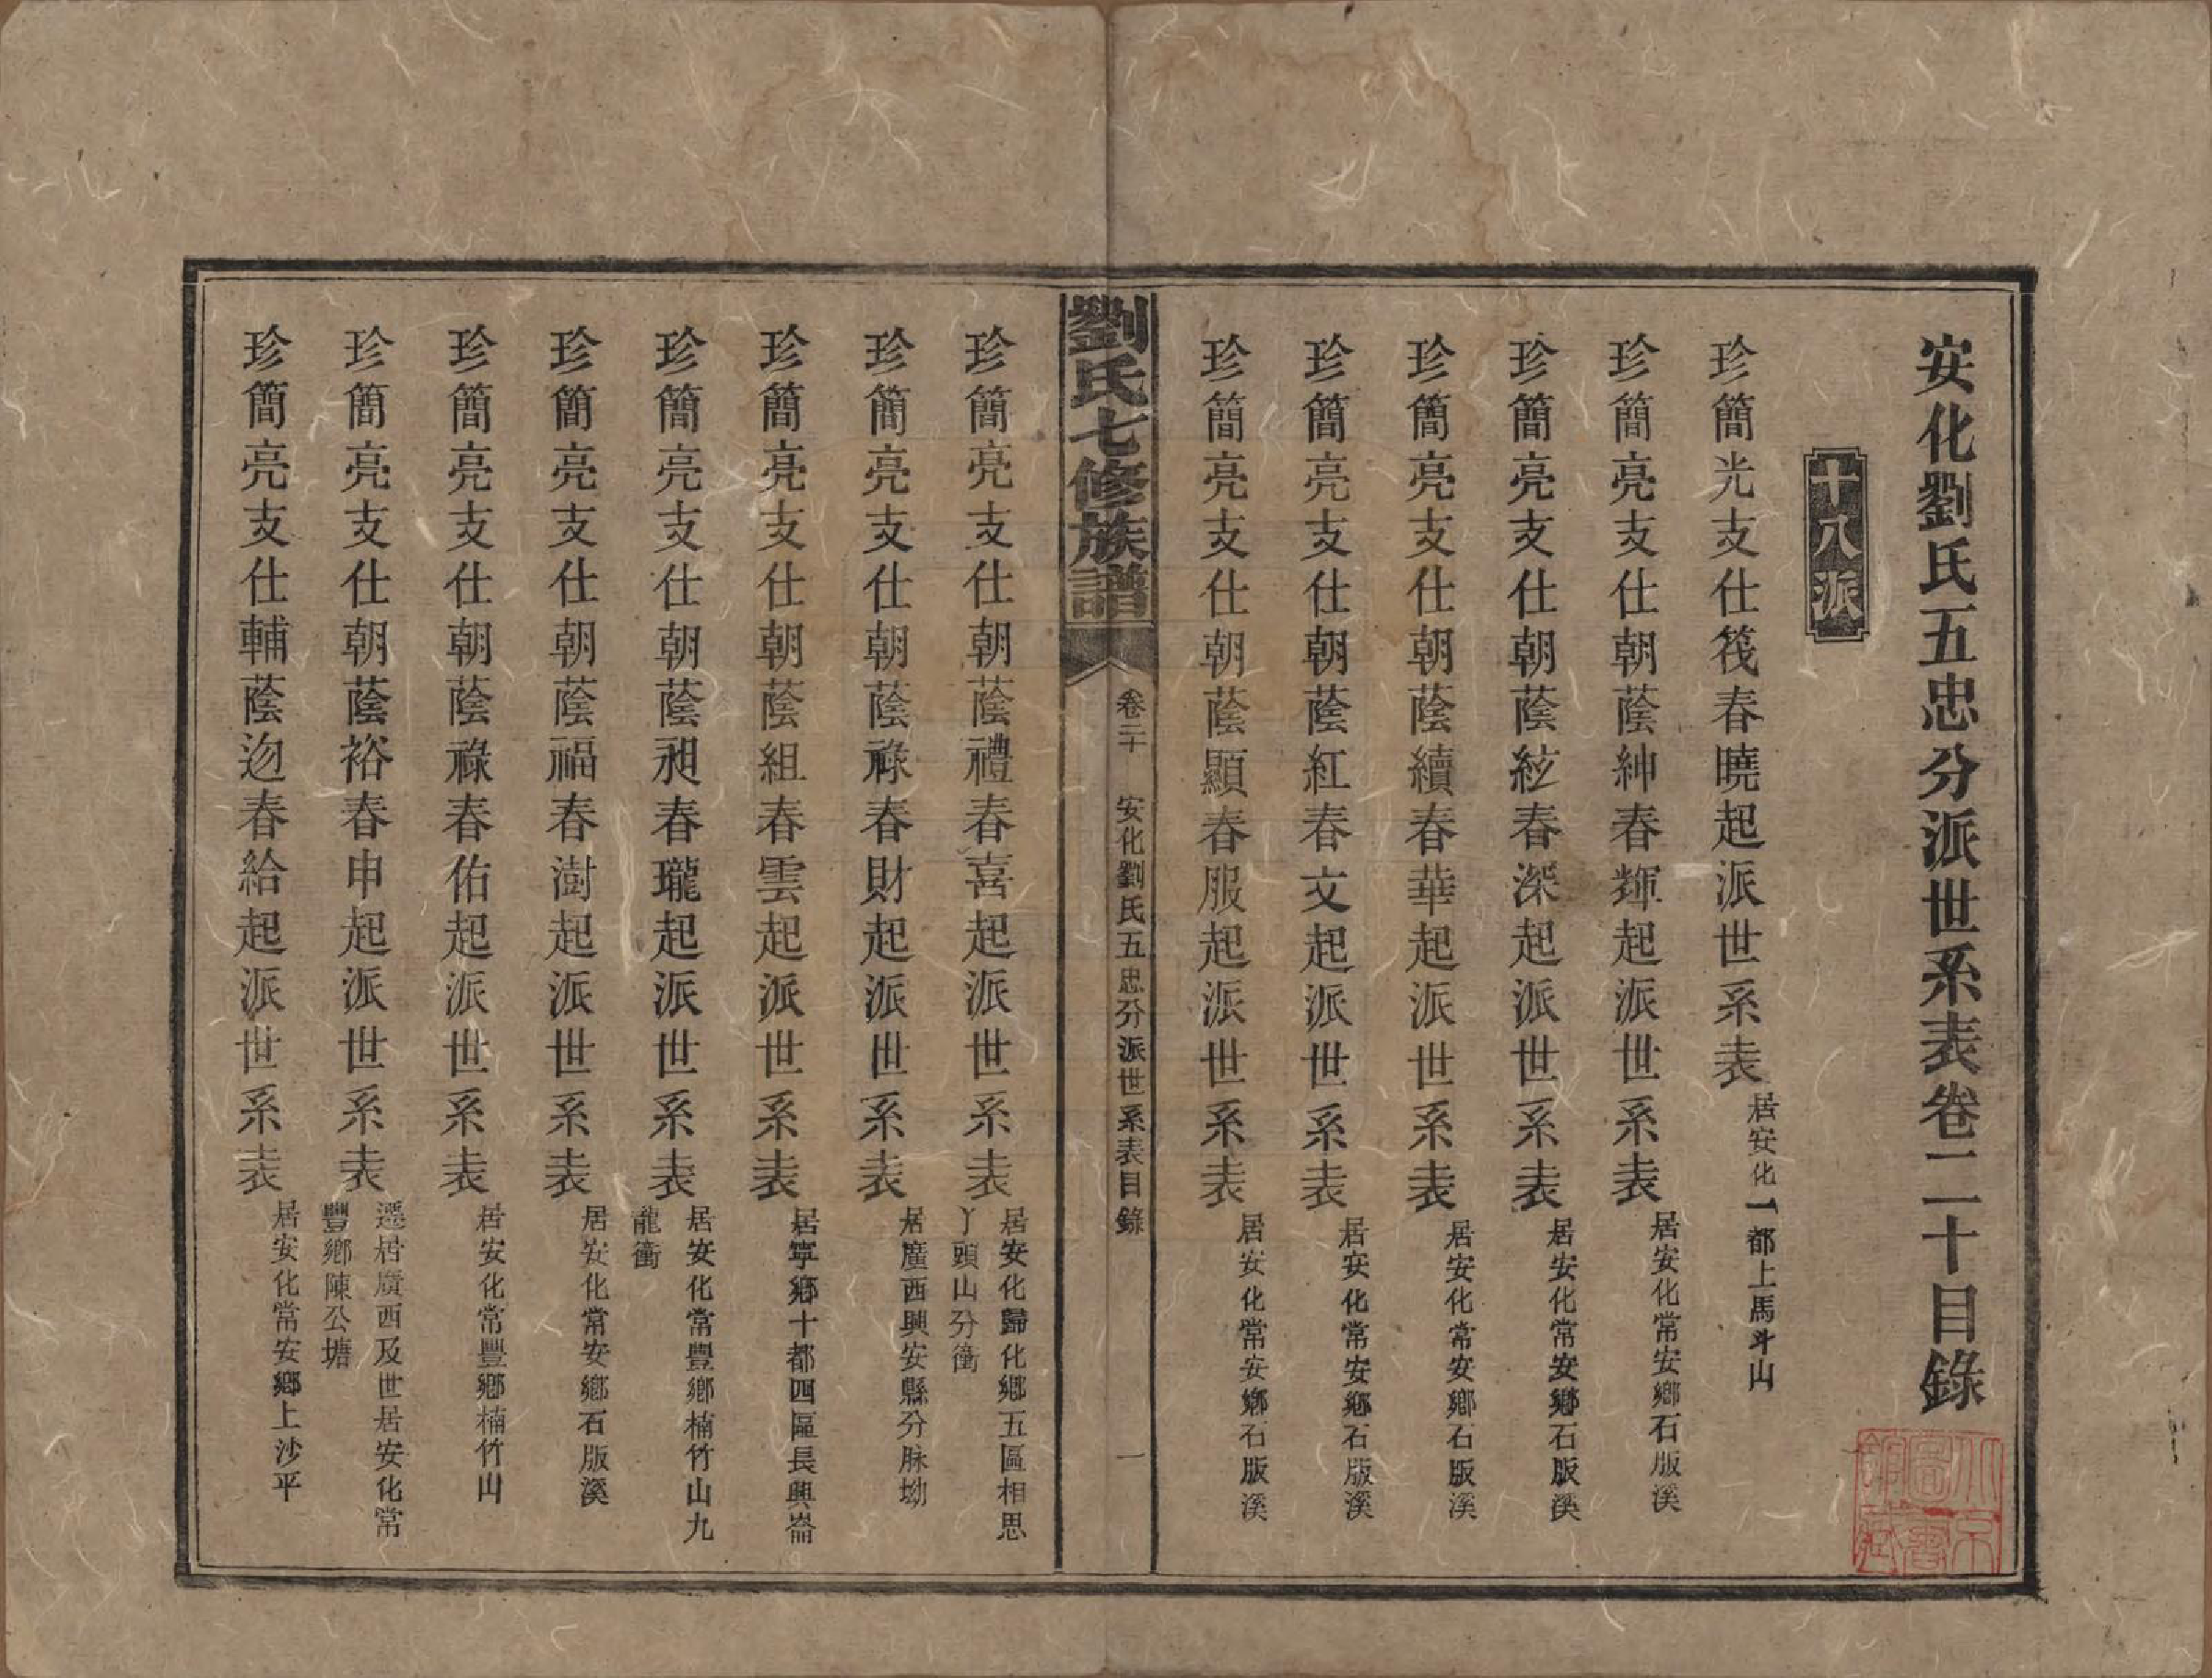 安化劉氏五忠分派世系表卷二十目錄
十八派
珍簡光支仕筏春曉起派世系表
居安化一都上馬斗山
珍簡亮支仕朝蔭紳春輝起派世系表
居安化常安鄉石版溪
珍簡亮支仕朝蔭紘春深起派世系表
居安化常安鄉石版溪
珍簡亮支仕朝蔭續春華起派世系表
居安化常安鄉石版溪
珍簡亮支仕朝蔭紅春文起派世系表
居安化常安鄉石版溪
珍簡亮支仕朝蔭顯春服起派世系表
居安化常安鄉石版溪
劉氏七修族譜
卷二十
安化劉氏五忠分派世系表目錄
一
珍簡亮支仕朝蔭禮春喜起派世系表
居安化歸化鄉五區相思
丫頭山分衝
珍簡亮支仕朝蔭祿春財起派世系表
居廣西興安縣分脉坳
珍簡亮支仕朝蔭組春雲起派世系表
居寧鄉十都四區長興崙
珍簡亮支仕朝蔭昶春瓏起派世系表
居安化常豐鄉楠竹山九
龍衝
珍簡亮支仕朝蔭福春澍起派世系表
居安化常安鄉石版溪
珍簡亮支仕朝蔭祿春佑起派世系表
居安化常豐鄉楠竹山
珍簡亮支仕朝蔭裕春申起派世系表
遷居廣西及世居安化常
豐鄉陳公塘
珍簡亮支仕輔蔭迩春給起派世系表
居安化常安鄉上沙平